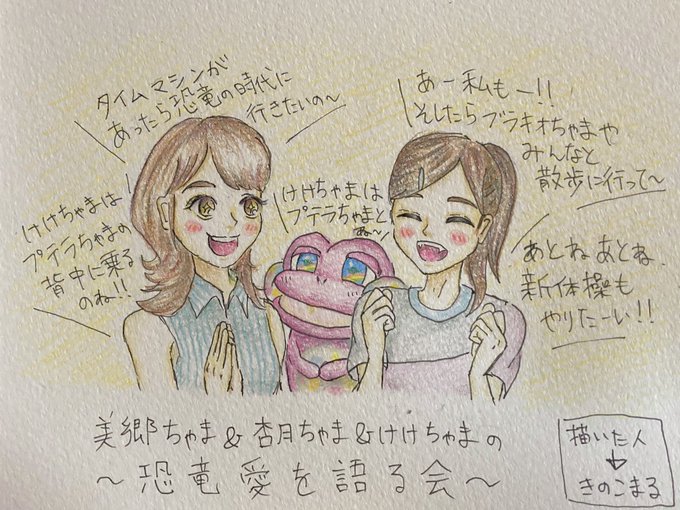 タイムマシンが
あったら恐竜の時代に
行きたいの〜
あー私もー!!
そしたらブラキオちゃまや
みんなと
散歩に行って〜
けけちゃまは
プテラちゃまの
背中に乗る
のね!!
けけちゃまは
プテラちゃまと
ね〜
あとね あとね、
新体操も
やりたーい!!
美郷ちゃま&杏月ちゃま&けけちゃまの
〜恐竜愛を語る会〜
描いた人
↓
きのこまる